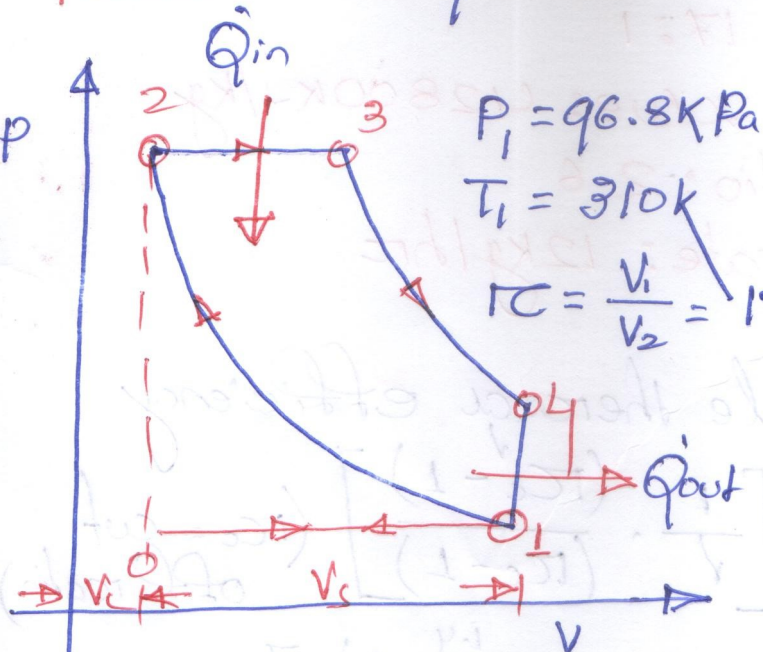 Qin
2
3
P
P₁ = 96.8KPa
T₁ = 310K
rc = V₁/V₂ =
4
Qout
1
0
Vc
Vs
V